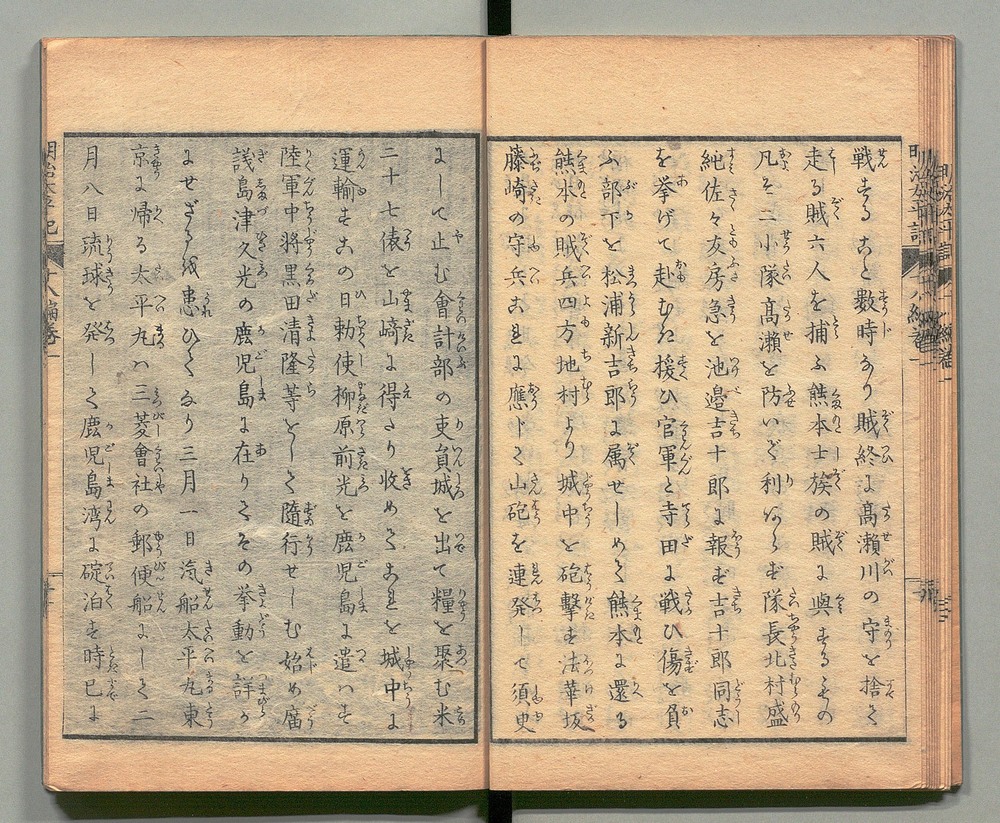 戦することと數時なり賊終に髙瀬川の守を捨て
走る賊六人を捕ふ熊本士族の賊に與するもの
凡そ二小隊髙瀬を防いで利あらず隊長北村盛
純佐々友房急を池邉吉十郎に報ず吉十郎同志
を挙げて赴むき援ひ官軍と寺田に戦ひ傷を負
ふ部下を松浦新吉郎に属せしめて熊本に還る
熊本の賊兵四方地村より城中を砲撃す法華坂
藤崎の守兵これに應じて山砲を連発して須臾
にして止む會計部の吏員城を出て糧を聚む米
二十七俵を山﨑に得たり收めてこれを城中に
運輸すこの日勅使柳原前光を鹿児島に遣はす
陸軍中将黒田清隆等をして隨行せしむ始め廟
議島津久光の鹿児島に在りてその挙動を詳か
にせざるを患ひてなり三月一日滊船太平丸東
京に帰る太平丸ハ三菱會社の郵便船にして二
月八日琉球を発して鹿児島湾に碇泊す時已に
明治太平記 十八編巻一